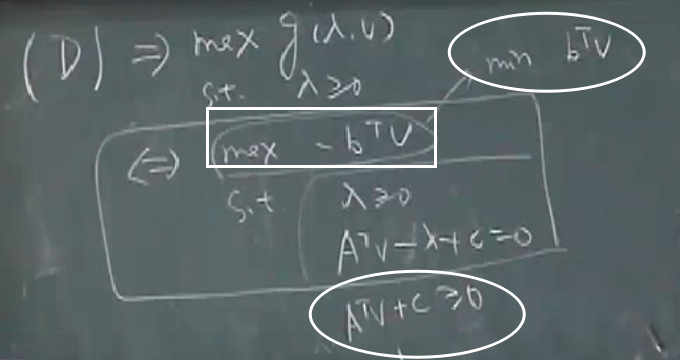 (D) ⇒ max g(λ,ν)
s.t. λ≥0
min bᵀν
⇔ max -bᵀν
s.t λ≥0
Aᵀν-λ+c=0
Aᵀν+c≥0